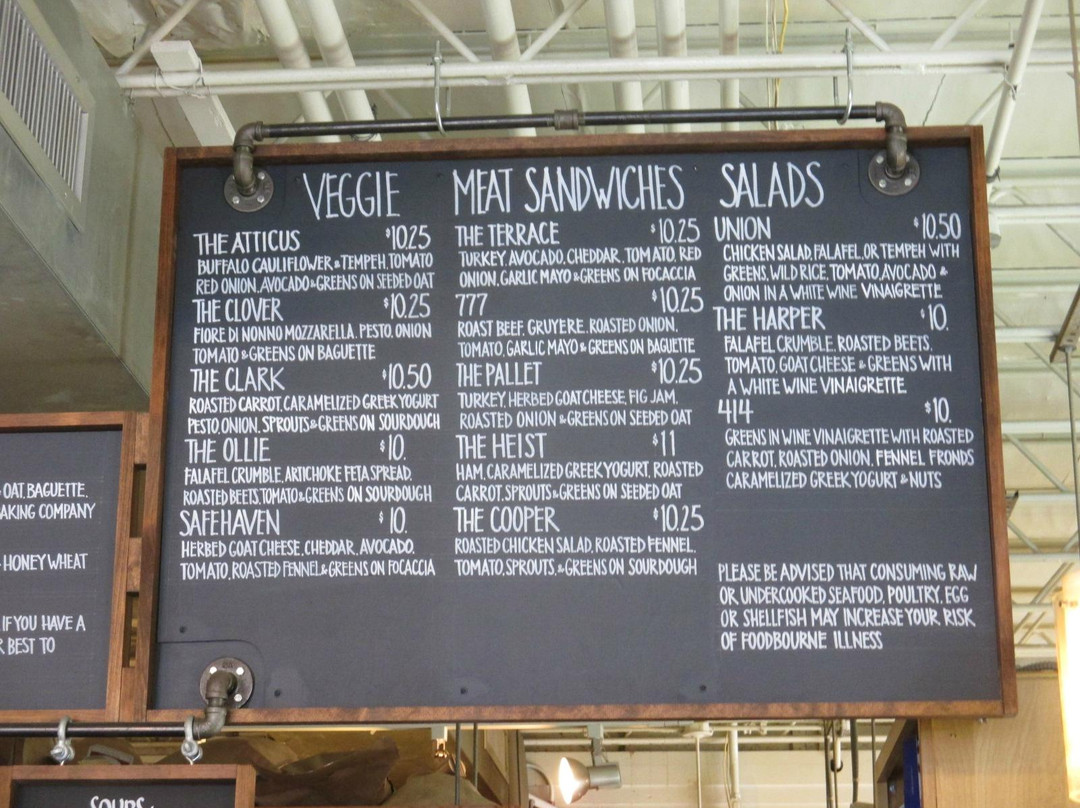 VEGGIE
THE ATTICUS $10.25
BUFFALO CAULIFLOWER & TEMPEH, TOMATO
RED ONION, AVOCADO & GREENS ON SEEDED OAT
THE CLOVER $10.25
FIORE DI NONNO MOZZARELLA, PESTO, ONION
TOMATO & GREENS ON BAGUETTE
THE CLARK $10.50
ROASTED CARROT, CARAMELIZED GREEK YOGURT
PESTO, ONION, SPROUTS & GREENS ON SOURDOUGH
THE OLLIE $10.
FALAFEL CRUMBLE, ARTICHOKE FETA SPREAD,
ROASTED BEETS, TOMATO & GREENS ON SOURDOUGH
SAFEHAVEN $10.
HERBED GOAT CHEESE, CHEDDAR, AVOCADO,
TOMATO, ROASTED FENNEL & GREENS ON FOCACCIA
MEAT SANDWICHES
THE TERRACE $10.25
TURKEY, AVOCADO, CHEDDAR, TOMATO, RED
ONION, GARLIC MAYO & GREENS ON FOCACCIA
777 $10.25
ROAST BEEF, GRUYERE, ROASTED ONION,
TOMATO, GARLIC MAYO & GREENS ON BAGUETTE
THE PALLET $10.25
TURKEY, HERBED GOAT CHEESE, FIG JAM,
ROASTED ONION & GREENS ON SEEDED OAT
THE HEIST $11
HAM, CARAMELIZED GREEK YOGURT, ROASTED
CARROT, SPROUTS & GREENS ON SEEDED OAT
THE COOPER $10.25
ROASTED CHICKEN SALAD, ROASTED FENNEL,
TOMATO, SPROUTS, & GREENS ON SOURDOUGH
SALADS
UNION $10.50
CHICKEN SALAD, FALAFEL, OR TEMPEH WITH
GREENS, WILD RICE, TOMATO, AVOCADO &
ONION IN A WHITE WINE VINAIGRETTE
THE HARPER $10.
FALAFEL CRUMBLE, ROASTED BEETS,
TOMATO, GOAT CHEESE & GREENS WITH
A WHITE WINE VINAIGRETTE
414 $10.
GREENS IN WINE VINAIGRETTE WITH ROASTED
CARROT, ROASTED ONION, FENNEL FRONDS
CARAMELIZED GREEK YOGURT & NUTS
PLEASE BE ADVISED THAT CONSUMING RAW
OR UNDERCOOKED SEAFOOD, POULTRY, EGG
OR SHELLFISH MAY INCREASE YOUR RISK
OF FOODBOURNE ILLNESS
OAT, BAGUETTE,
AKING COMPANY
HONEY WHEAT
IF YOU HAVE A
R BEST TO
SOUPS